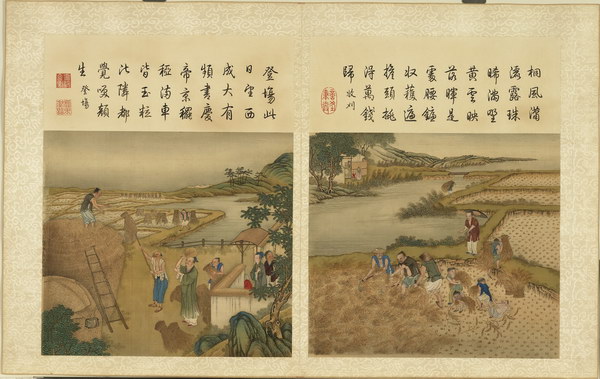 桐風
露珠
晞滿野
黃雲映
落暉是
處腰鎌
收穫遍
擔頭挑
得萬錢
歸 收刈
登場此
日望西
成大有
頻書慶
帝京穲
稏滿車
皆玉粒
比隣都
覺咲顏
生 登場